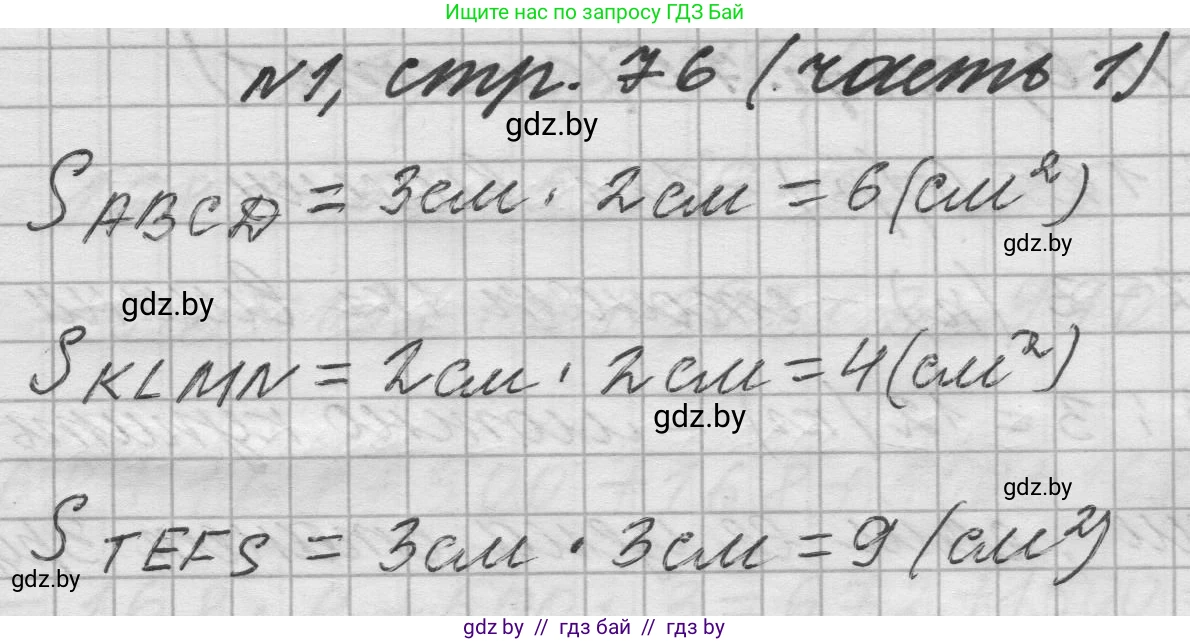 Ищите нас по запросу ГДЗ Бай
№1, стр. 76 (часть 1)
gdz.by
S ABCD = 3см · 2см = 6(см²)
gdz.by
gdz.by
S KLMN = 2см · 2см = 4(см²)
gdz.by
gdz.by
S TEFS = 3см · 3см = 9(см²)
gdz.by
gdz by // гдз бай // гдз by